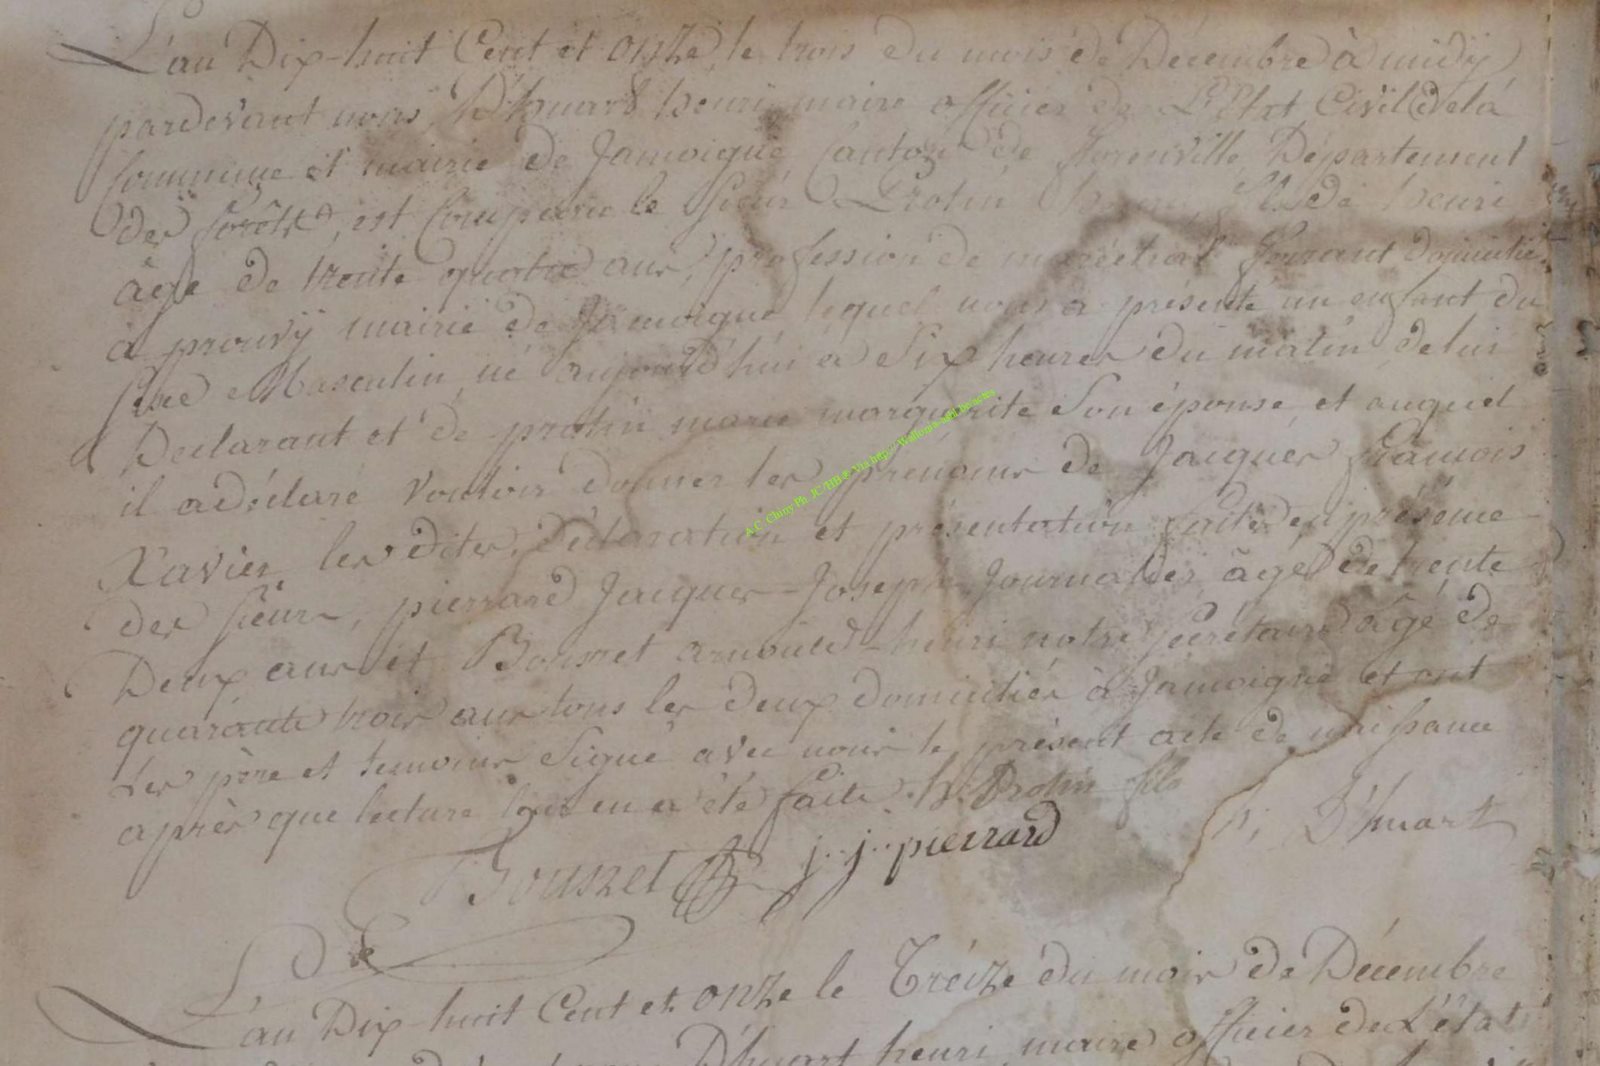 L'an Dix-huit Cent et onze, le trois du mois de Décembre à midÿ
pardevant nous D'huart henri maire officier de L'Etat Civil de la
Commune et mairie de Jamoigne Canton de florenville, Département
des forêts, est Comparu le Sieur Protin fils de henri
âgé de trente quatre ans, profession de maréchal ferrant domicilié
à prouvÿ mairie de Jamoigne, lequel nous a présenté un enfant du
sexe Masculin, né aujourd'hui à Six heures du matin de lui
Déclarant et de protin marie marguerite Son épouse, et auquel
il a déclaré vouloir donner les prénoms de Jacques françois
Xavier, les dites déclaration et présentation faites en présence
des sieurs, pierrard Jacques-Joseph Journalier, âgé de trente
Deux ans et Bousret arnould-henri notre secrétaire âgé de
quarante trois ans tous les deux domiciliés à Jamoigne et ont
les père et temoins Signé avec nous le présent acte de naissance
après que lecture leur en a été faite. h: Protin fils
h; D'huart
Bousret j.. j.. pierrard
L'an Dix-huit Cent et onze le Tréize du mois de Décembre
D'huart henri, maire officier de L'état
A.C. Chiny Ph. JC/HB